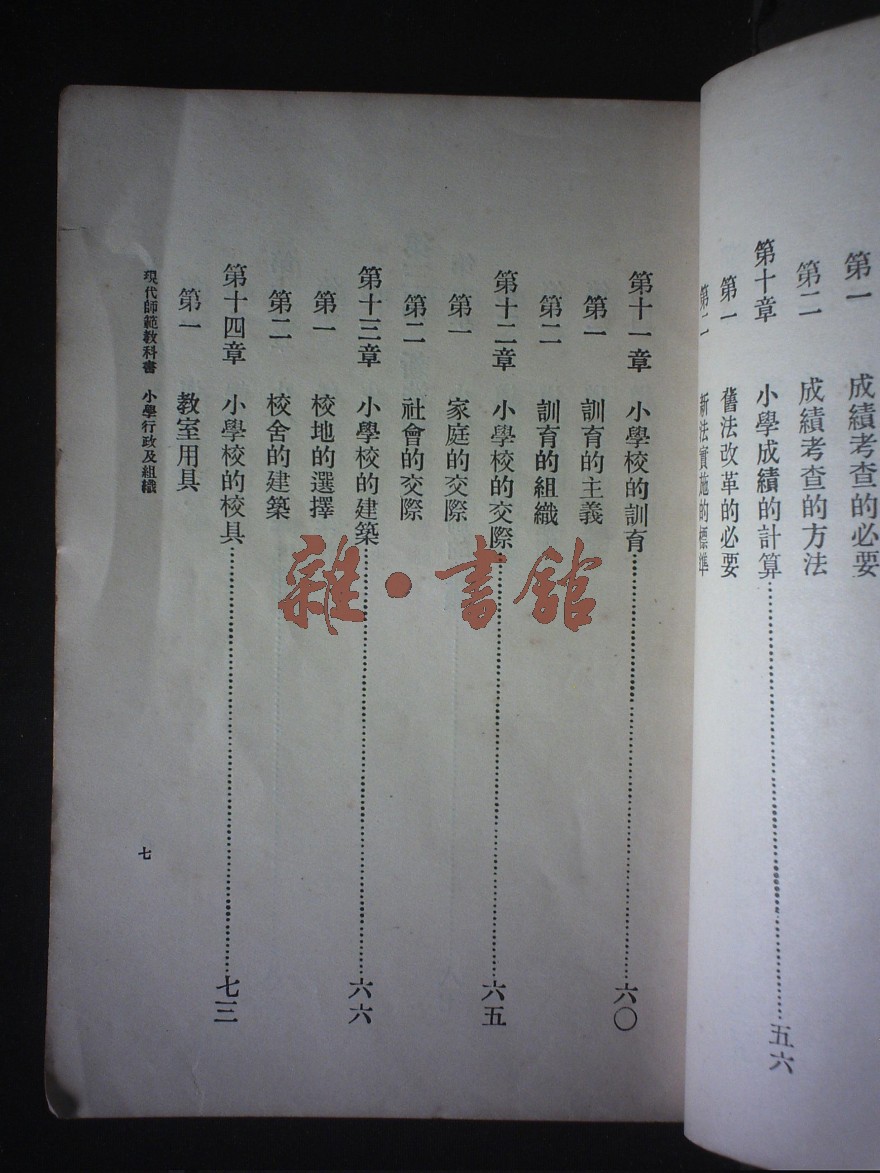 第一 成績考查的必要
第二 成績考查的方法
第十章 小學成績的計算 五六
第一 舊法改革的必要
第二 新法實施的標準
第十一章 小學校的訓育 六〇
第一 訓育的主義
第二 訓育的組織
第十二章 小學校的交際 六五
第一 家庭的交際
第二 社會的交際
第十三章 小學校的建築 六六
第一 校地的選擇
第二 校舍的建築
第十四章 小學校的校具 七三
第一 教室用具
現代師範教科書 小學行政及組織 七
雜·書館